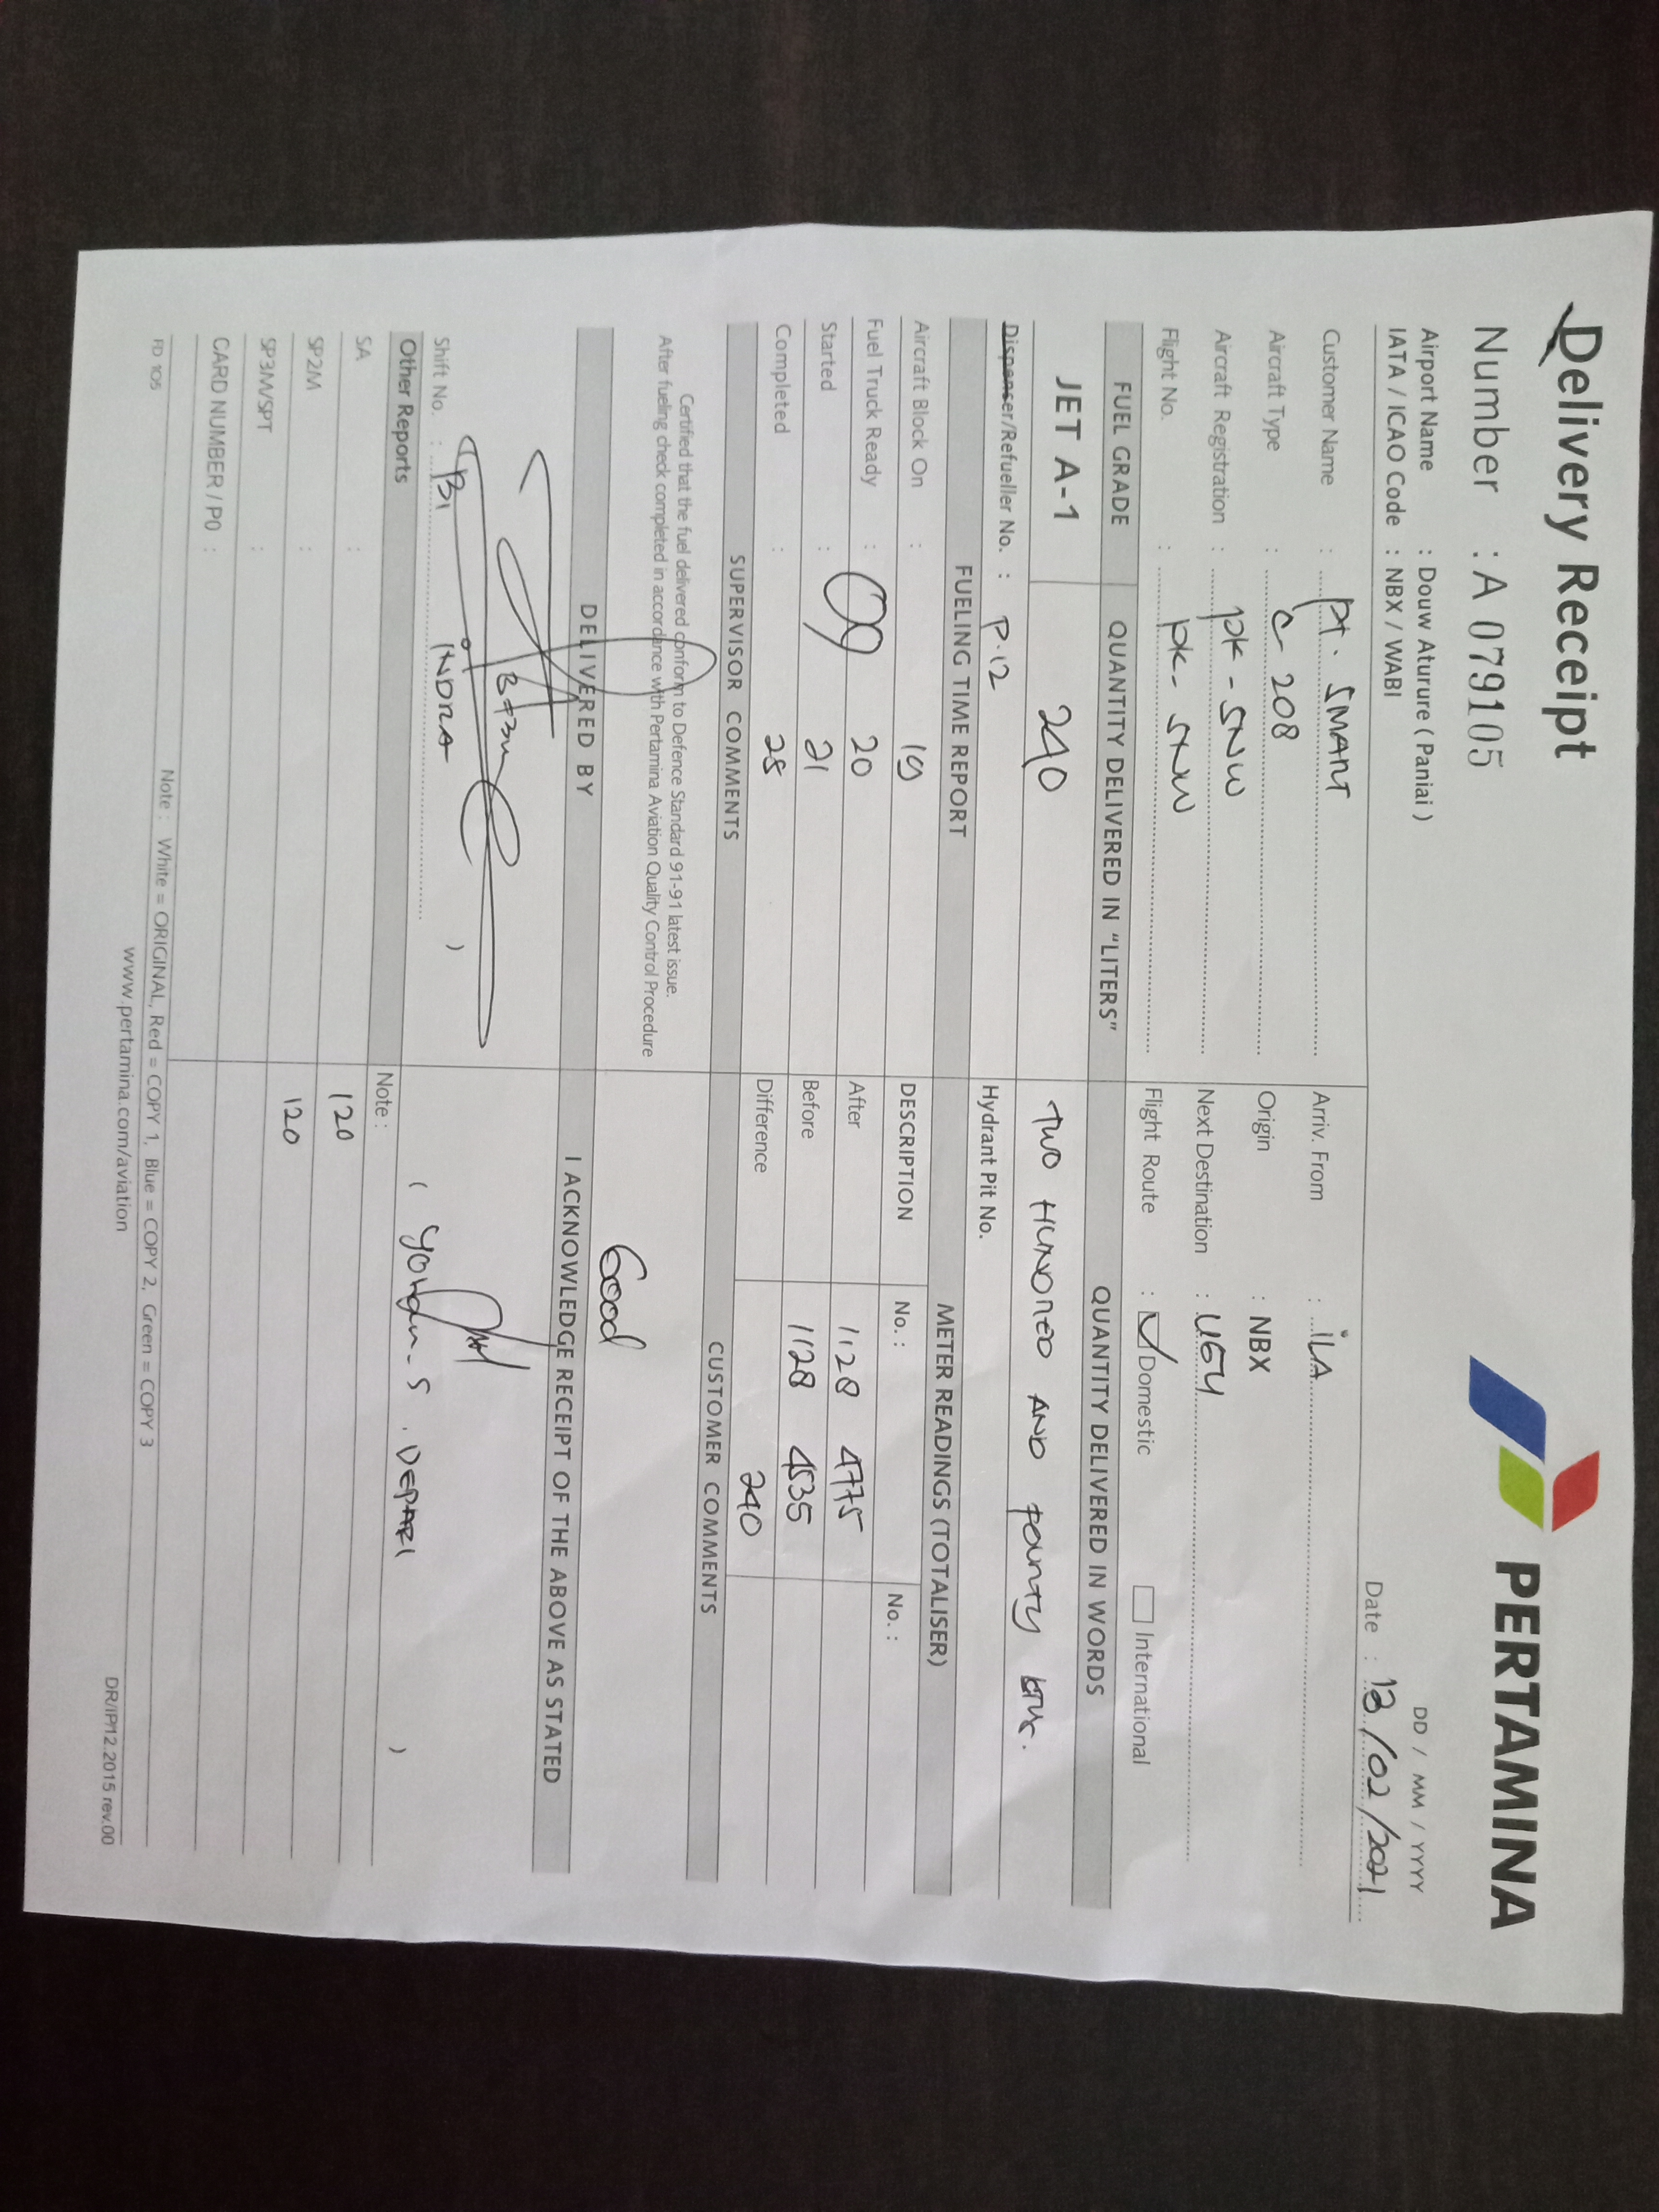 Delivery Receipt
PERTAMINA
Number : A 079105
DD / MM / YYYY
Airport Name : Douw Aturure ( Paniai )
Date : 13/02/2021
IATA / ICAO Code : NBX / WABI
Customer Name : PT. SMART
Arriv. From : iLA
Aircraft Type : C 208
Origin : NBX
Aircraft Registration : PK - SNW
Next Destination : UGU
Flight No. : PK - SNW
Flight Route : Domestic International
FUEL GRADE QUANTITY DELIVERED IN "LITERS" QUANTITY DELIVERED IN WORDS
JET A-1 240 TWO HUNDRED AND FOURTY
Dispenser/Refueller No. : P.12
Hydrant Pit No.
FUELING TIME REPORT METER READINGS (TOTALISER)
Aircraft Block On : 19
DESCRIPTION No. : No. :
Fuel Truck Ready : 20
After 1128 4775
Started : 21
Before 1128 4535
Completed : 28
Difference 240
SUPERVISOR COMMENTS CUSTOMER COMMENTS
Certified that the fuel delivered conform to Defence Standard 91-91 latest issue.
After fueling check completed in accordance with Pertamina Aviation Quality Control Procedure
Good
DELIVERED BY I ACKNOWLEDGE RECEIPT OF THE ABOVE AS STATED
Shift No. : INDRA )
( )
Other Reports Note :
SA : 120
SP2M : 120
SP3M/SPT :
CARD NUMBER / PO :
Note : White = ORIGINAL, Red = COPY 1, Blue = COPY 2, Green = COPY 3
FD 105
www.pertamina.com/aviation
DR/IP/12.2015 rev.00